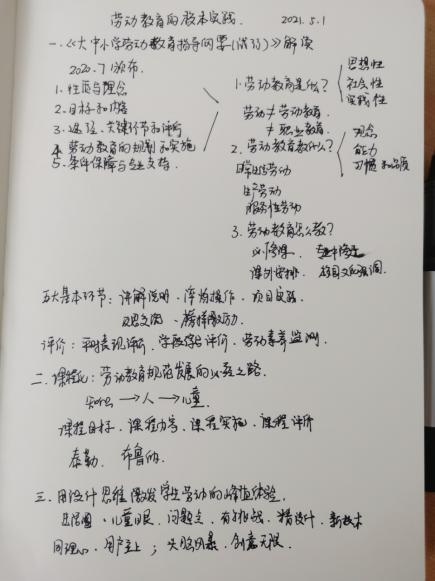 劳动教育的校本实践. 2021.5.1
一.《大中小学劳动教育指导纲要(试行)》解读
2020.7颁布.
1.性质与理念
2.目标和内容
3.途径、关键环节和评价
4.劳动教育的规划和实施
5.条件保障与专业支持.
1.劳动教育是什么?
思想性
社会性
实践性
劳动≠劳动教育
≠职业教育.
2.劳动教育教什么?
观念
能力
习惯和品质
日常生活劳动
生产劳动
服务性劳动
3.劳动教育怎么教?
必修课.
课外安排.
五大基本环节:讲解说明、淬炼操作、项目实践
反思交流、榜样激励.
评价:平时表现评价、学段综合评价、劳动素养监测.
二.课程化:劳动教育规范发展的必经之路.
知识→人→儿童.
课程目标、课程内容、课程实施、课程评价
泰勒. 布鲁纳.
三.用设计思维激发学生劳动的峰值体验.
儿童眼、问题点、有挑战、精设计、新技术
同理心、用户至上;头脑风暴、创意无限.